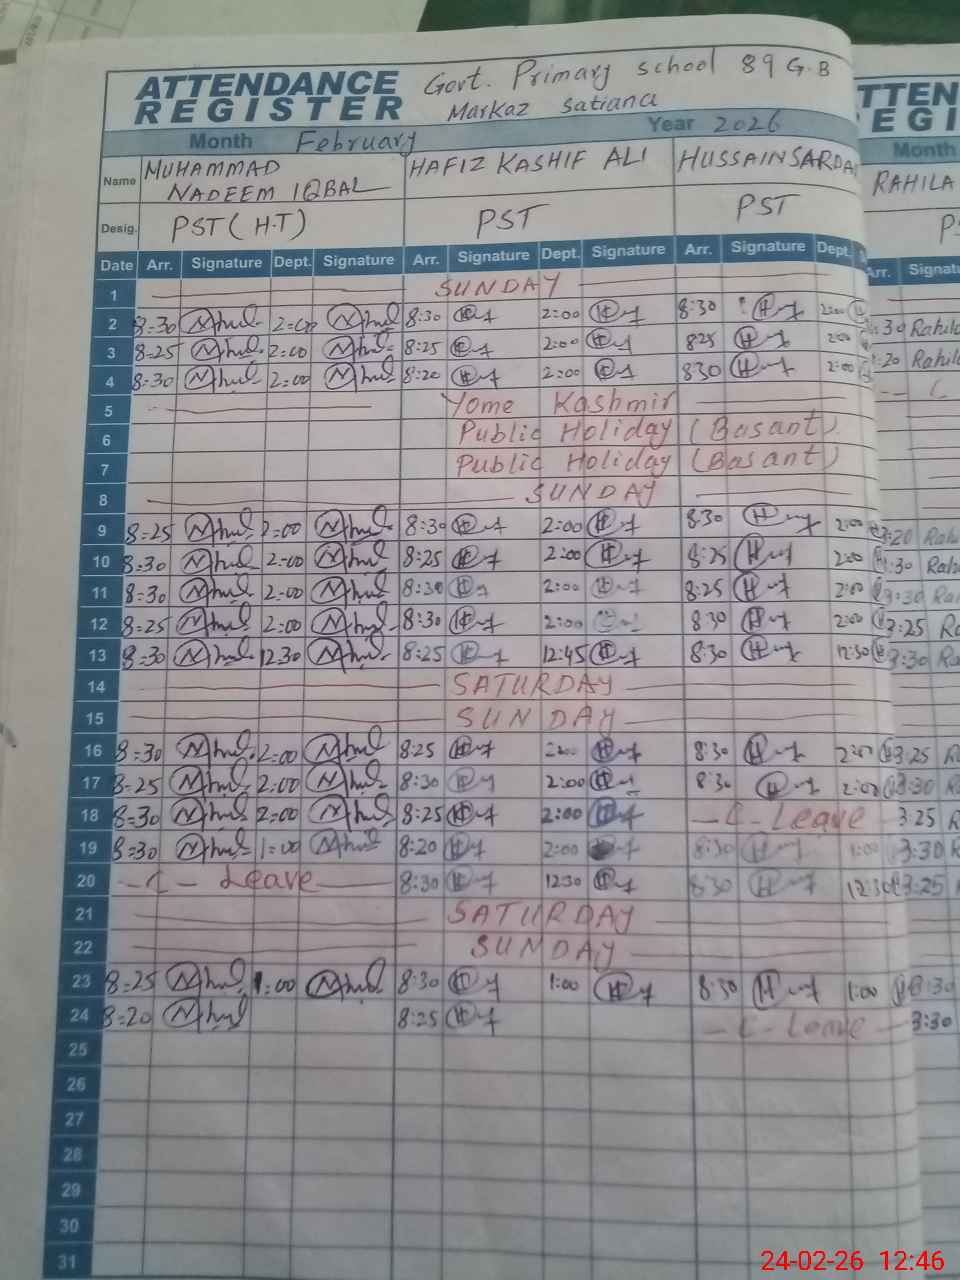 ATTENDANCE REGISTER Govt. Primary school 89 G.B
Markaz Satiana
Month February Year 2026
Name MUHAMMAD NADEEM IQBAL HAFIZ KASHIF ALI HUSSAIN SARDA
Desig. PST (H.T) PST PST
Date Arr. Signature Dept. Signature Arr. Signature Dept. Signature Arr. Signature Dept.
1 SUNDAY
2 8=30 2=00 8:30 2:00 8:30 2:00
3 8=25 2=00 8:25 2:00 825 2:00
4 8=30 2=00 8:20 2:00 830 2:00
5 Yome Kashmir
6 Public Holiday (Basant)
7 Public Holiday (Basant)
8 SUNDAY
9 8=25 2=00 8:30 2:00 8:30 2:00
10 8=30 2=00 8:25 2:00 8:25 2:00
11 8=30 2=00 8:30 2:00 8:25 2:00
12 8=25 2=00 8:30 2:00 8:30 2:00
13 8=30 12.30 8:25 12:45 8:30 12:30
14 SATURDAY
15 SUNDAY
16 8=30 2=00 8:25 2:00 8:30 2:00
17 8=25 2=00 8:30 2:00 8:30 2:00
18 8=30 2=00 8:25 2:00 - C - Leave
19 8=30 1=00 8:20 2:00 8:30 1:00
20 - C - Leave 8:30 1230 8:30 12:30
21 SATURDAY
22 SUNDAY
23 8=25 1=00 8:30 1:00 8:30 1:00
24 8=20 8:25 - C - Leave
25
26
27
28
29
30
31
TTEN
EGI
Month
RAHILA
Arr. Signat
:30 Rahila
:20 Rahila
24-02-26 12:46